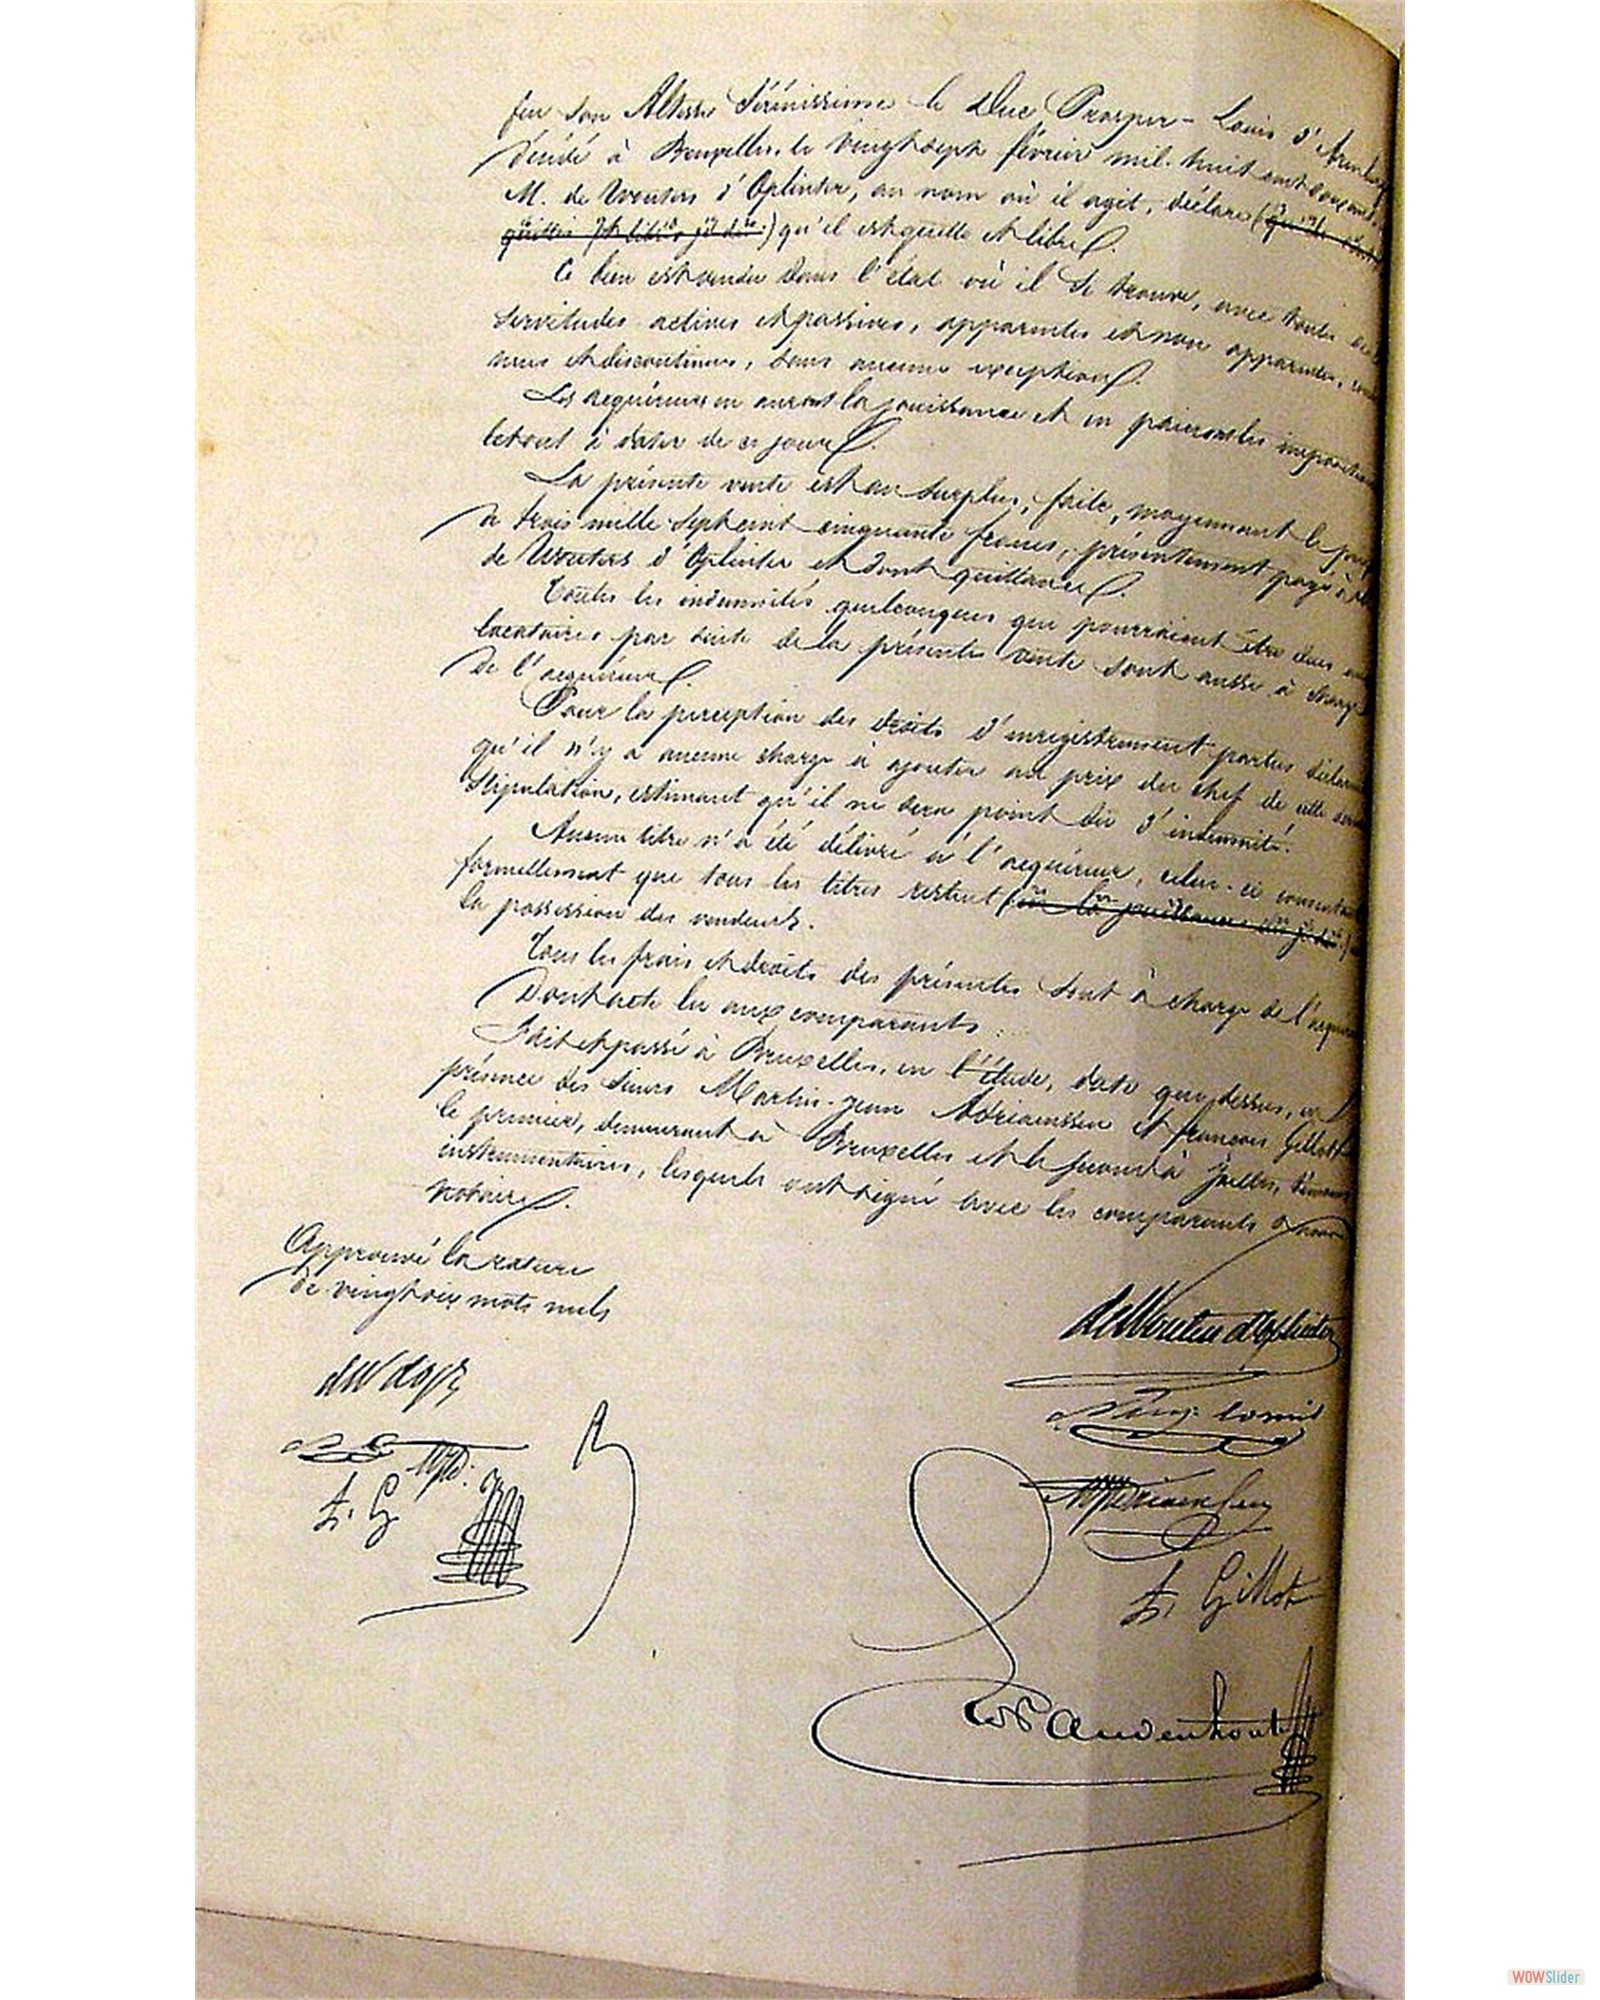 feu son Altesse Sérénissime le Duc Prosper-Louis d'Arenberg
décédé à Bruxelles, le vingt sept février mil huit cent soixante
M. de Wouters d'Oplinter, au nom où il agit, déclare (
quitte et libre) qu'il est quitte et libre.
Ce bien est vendu dans l'état où il se trouve, avec toutes
servitudes actives et passives, apparentes et non apparentes,
nues et discontinues, sans aucune exception.
Les acquéreurs en auront la jouissance et en paieront les impositions
le tout à dater de ce jour.
La présente vente est au surplus, faite, moyennant le prix
de trois mille sept cent cinquante francs, présentement payé à
de Wouters d'Oplinter et dont quittance.
Toutes les indemnités quelconques que pourraient être dues aux
locataires par suite de la présente vente sont aussi à charge
de l'acquéreur.
Pour la perception des droits d'enregistrement parties déclarent
qu'il n'y a aucune charge à ajouter au prix du chef de cette
stipulation, estimant qu'il ne sera point dû d'indemnité.
Aucun titre n'a été délivré à l'acquéreur, celui-ci consentant
formellement que tous les titres restent (en la puissance
la possession des vendeurs.
Tous les frais et droits des présentes sont à charge de l'acquéreur
Dont acte lu aux comparants.
Fait et passé à Bruxelles, en l'étude, date que dessus, en
présence des sieurs Martin-Jean Adriaenssen et François Gillot
le premier, demeurant à Bruxelles et le second à Ixelles, témoins
instrumentaires, lesquels ont signé avec les comparants & nous
notaire.
Approuvé la rature
de vingt six mots nuls
de Wouters d'Oplinter
F. G
F. Gillot
Vandenhoute
WOWSlider